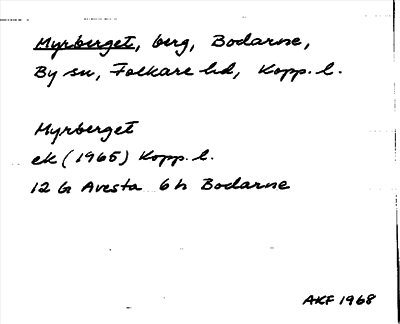 Myrberget, berg, Bodarne,
By sn, Folkare hd, Kopp. l.
Myrberget
ek (1965) Kopp. l.
12 G Avesta 6 h Bodarne
AKF 1968